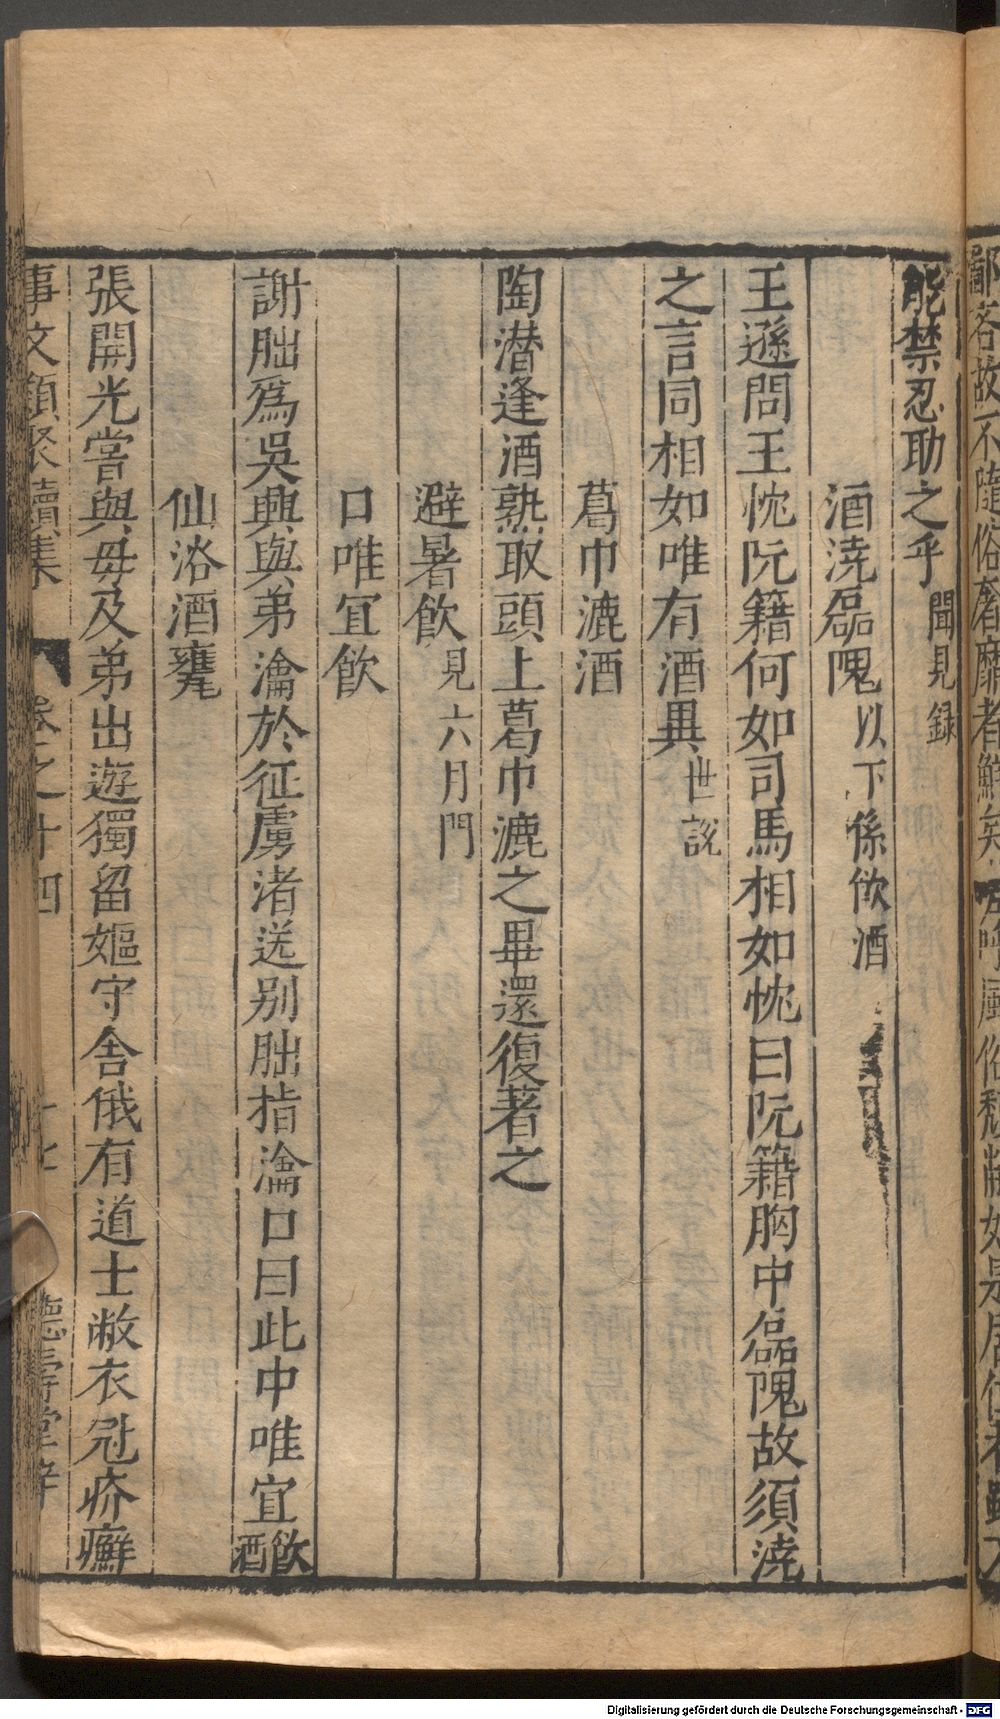 鄙吝故不隨俗奢靡者鮮矣
風俗
如是居位者雖不
能禁忍助之乎聞見録
酒澆磊隗以下係飲酒
王遜問王忱阮籍何如司馬相如忱曰阮籍胸中磊隗故須澆
之言同相如唯有酒異世說
葛巾漉酒
陶潜逢酒熟取頭上葛巾漉之畢還復著之
避暑飲見六月門
口唯宜飲
謝朏爲吳興與弟瀹於征虜渚送别朏指瀹口曰此中唯宜飲酒
仙浴酒甕
張開光嘗與母及弟出遊獨留嫗守舎俄有道士敝衣冠疥癬
事文類聚續集 卷之十四 十七 德壽堂梓
Digitalisierung gefördert durch die Deutsche Forschungsgemeinschaft - DFG